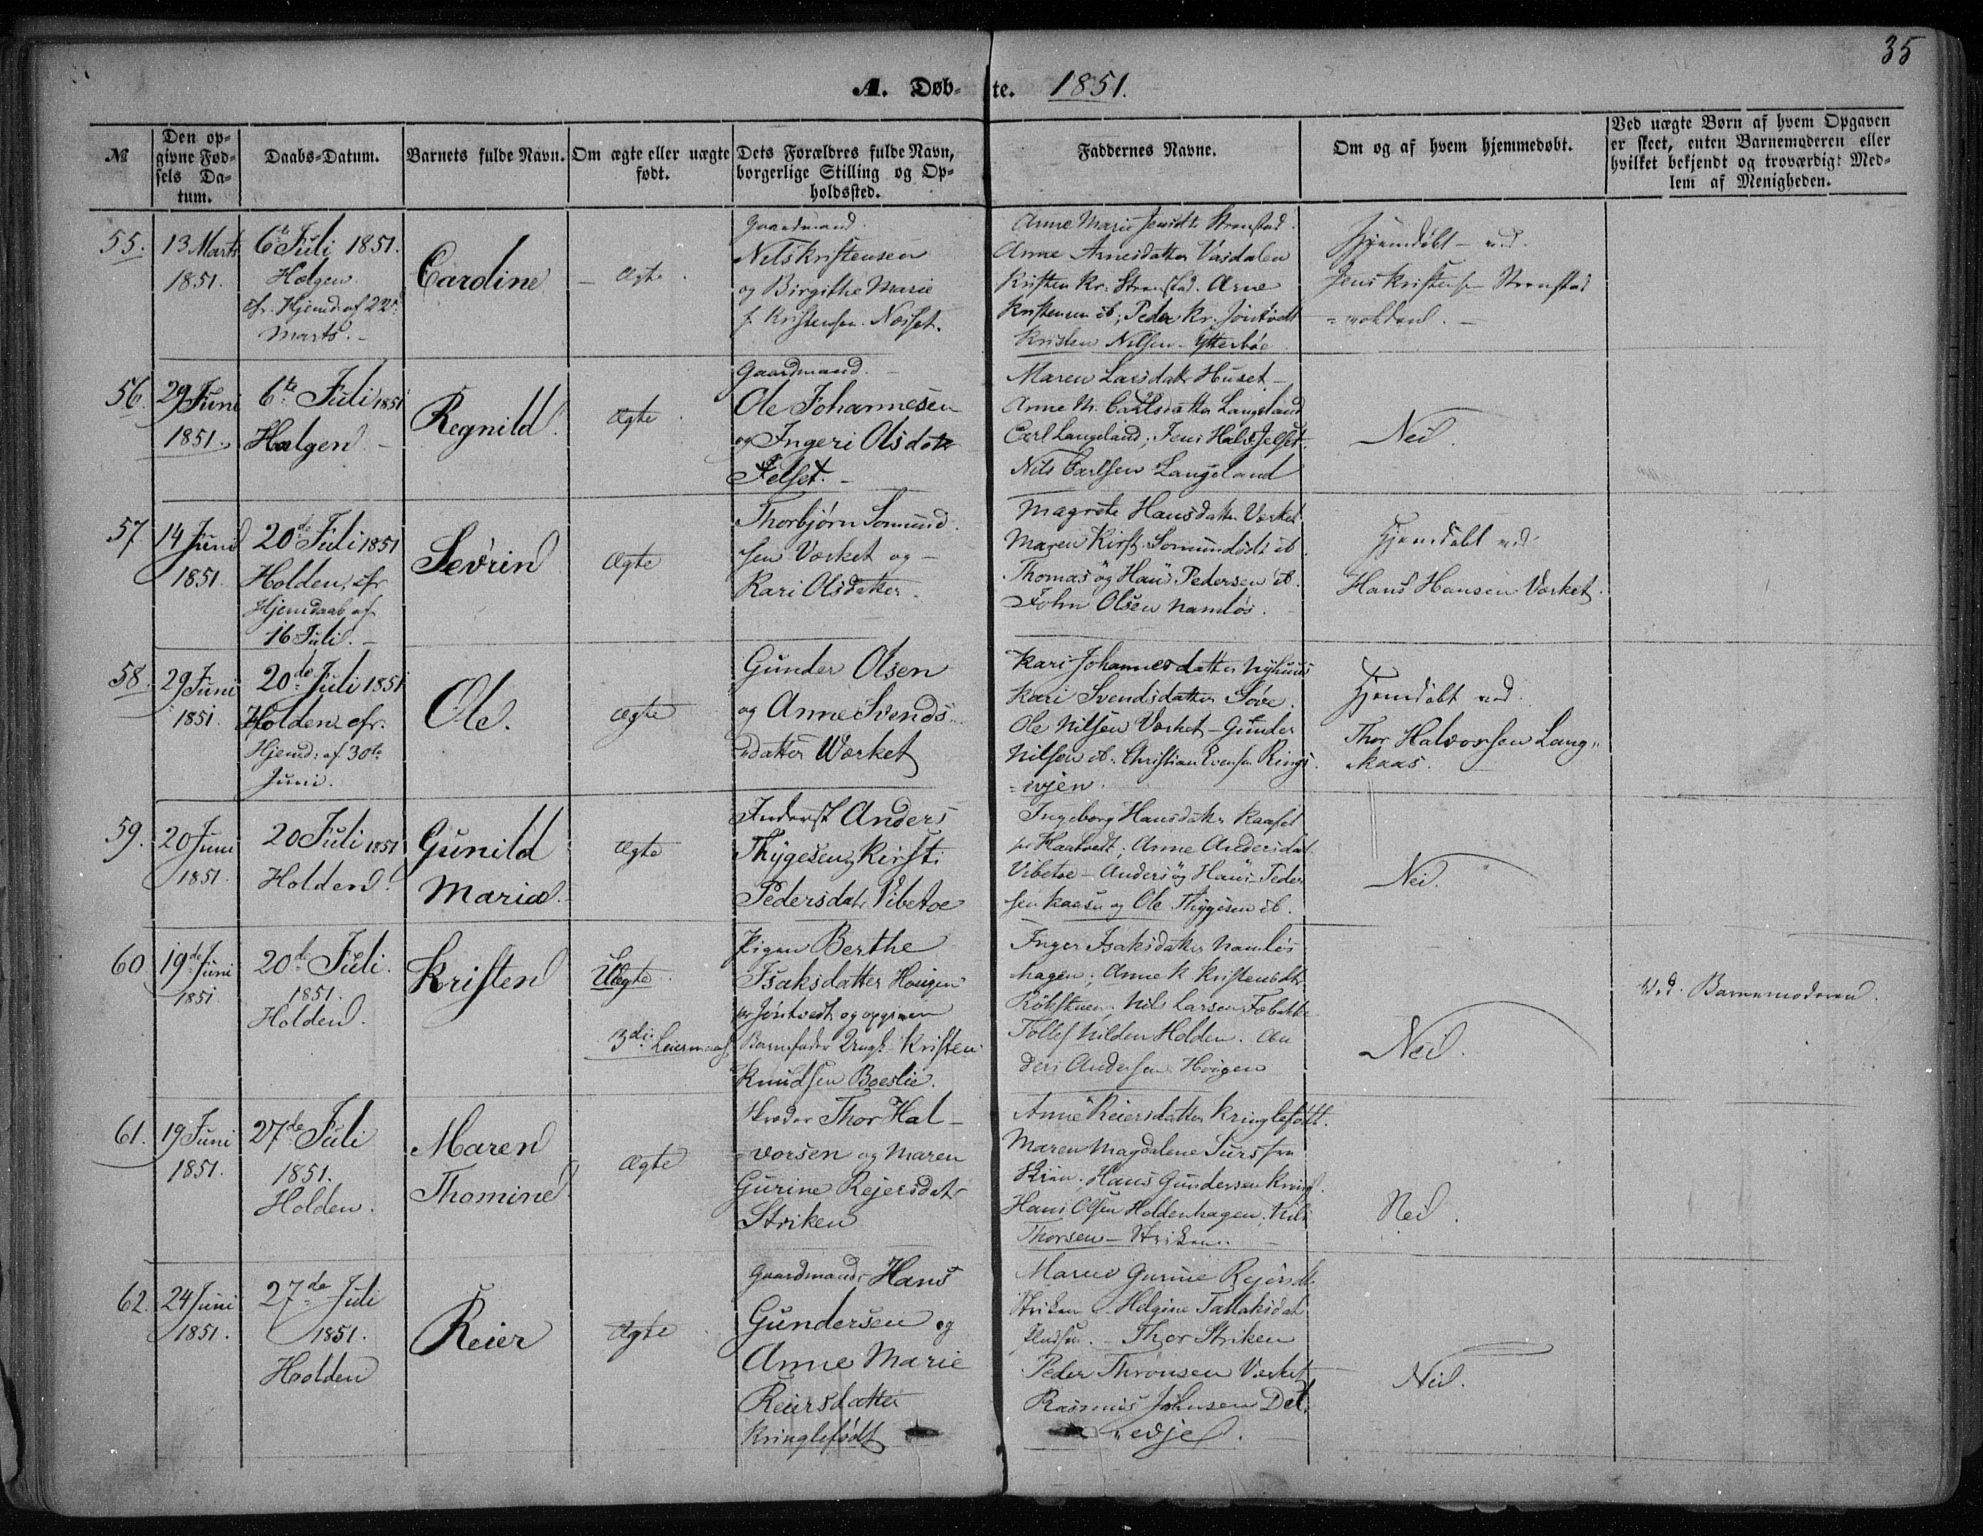 35
A. Døb- te. 1851.
№
Den op-
givne Fød-
sels Da-
tum.
Daabs-Datum.
Barnets fulde Navn.
Om ægte eller uægte
født.
Dets Forældres fulde Navn,
borgerlige Stilling og Op-
holdssted.
Faddernes Navne.
Om og af hvem hjemmedøbt.
Ved uægte Børn af hvem Opgaven
er skeet, enten Barnemoderen eller
hvilket bekjendt og troværdigt Med-
lem af Menigheden.
55.
13 Marts
1851.
6te Juli 1851.
Helgen
efr. Hjemd: af 22
Marts.
Cardine
Ægte
Gaardmand.
Nils Kristensen
og Birgithe Marie
f. Kristensen Næset.
Anne Marie Strønstad.
Anne Arnesdatter Vasdalen
Kristen Kr. Strønstad. Arne
Kristensen ib; Peder Kr.
Kristen Nilsen Ytterbøe
Hjemdøbt ved
Jens Kristensen Strønstad
=volden.
56.
29 Juni
1851.
6te Juli 1851
Hælgen
Regnild
Ægte
Gaardmand.
Ole Johannesen
og Ingeri Olsdatr
Jelset.
Maren Larsdatr Huset
Anne M. Carlsdatter Langeland
Carl Langeland; Jens Jelset.
Nils Carlsen Langeland
Nei.
57.
14 Juni
1851.
20de Juli 1851
Holden, efr
Hjemdaab af
16 Juli.
Sevrin
Ægte
Thorbjørn Somund.
sen Værket og
Kari Olsdatter.
Magrete Hansdatter Værket
Maren Kirst. Somundsdt ib.
Thomas og Hans Pedersen ib.
John Olsen Namløs.
Hjemdøbt ved
Hans Hansen Værket.
58.
29 Juni
1851.
20de Juli 1851
Holden efr.
Hjemd: af 30te
Juni.
Ole.
Ægte
Gunder Olsen
og Anne Svends-
datter Værket
Kari Johannesdatter Nyhuus
Kari Svendsdatter Søve.
Ole Nilsen Værket - Gunder
Nilsen ib. Christian Evensen Rings
=evjen.
Hjemdøbt ved
Thor Halvorsen Lang-
kaas.
59.
20 Juni
1851.
20 Juli 1851
Holden.
Gunild
Maria.
Ægte
Inderst Anders
Thygesen, Kirsti
Pedersdatr Vibetoe
Ingeborg Hansdatter Kaaset
pr Kaatvedt; Anne Andersdat
Vibetoe - Anders og Hans Peder
sen Kaasa og Ole Thygesen ib.
Nei.
60
19de Juni
1851
20de Juli.
1851.
Holden.
Kristen
Uægte.
3die Leiermaal
Pigen Berthe
Isaksdatter Hougen
pr Jøntvedt og opgiven
Barnefader Ungk. Kristen
Knudsen Boeslie.
Inger Isaksdatter Namløs
hagen; Anne K. Kristensdtr
Nils Larsen
Tollef Nilsen Holden. An
ders Andersen Hougen
Nei.
Ved Barnemoderen.
61.
19 Juni
1851.
27de Juli
1851.
Holden.
Maren
Thomine
Ægte
Skræder Thor Hal-
vorsen og Maren
Gurine Rejersdatr
Striken
Anne Reiersdatter Kringlefødt.
Maren Magdalene
Skien. Hans Gundersen Kringl.
Hans Olsen Holdenhagen. Nils
Thorsen - Striken.
Nei.
62.
24 Juni
1851.
27de Juli
1851.
Holden
Reier
Ægte
Gaardmand Hans
Gundersen og
Anne Marie
Reiersdatter
Kringlefødt
Maren Gurine Rejersd.
Striken. Helgine Tallaksdat
Thor Striken
Peder Thronsen Værket
Rasmus Johnsen Det.
evje.
Nei.